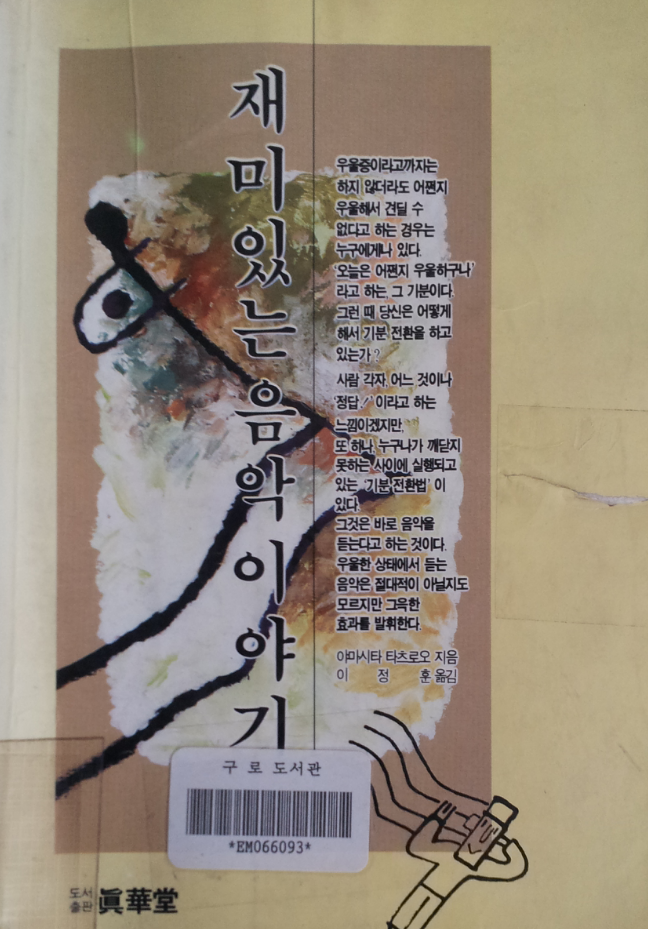 재미있는 음악 이야기
우울증이라고까지는
하지 않더라도 어쩐지
우울해서 견딜 수
없다고 하는 경우는
누구에게나 있다.
'오늘은 어쩐지 우울하구나'
라고 하는, 그 기분이다.
그런 때 당신은 어떻게
해서 기분 전환을 하고
있는가?
사람 각자, 어느 것이나
'정답!' 이라고 하는
느낌이겠지만,
또 하나, 누구나가 깨닫지
못하는 사이에 실행되고
있는 '기분 전환법' 이
있다.
그것은 바로 음악을
듣는다고 하는 것이다.
우울한 상태에서 듣는
음악은 절대적이 아닐지도
모르지만 그윽한
효과를 발휘한다.
야마시타 타츠로오 지음
이 정 훈 옮김
구로도서관
*EM066093*
도서
출판 眞華堂